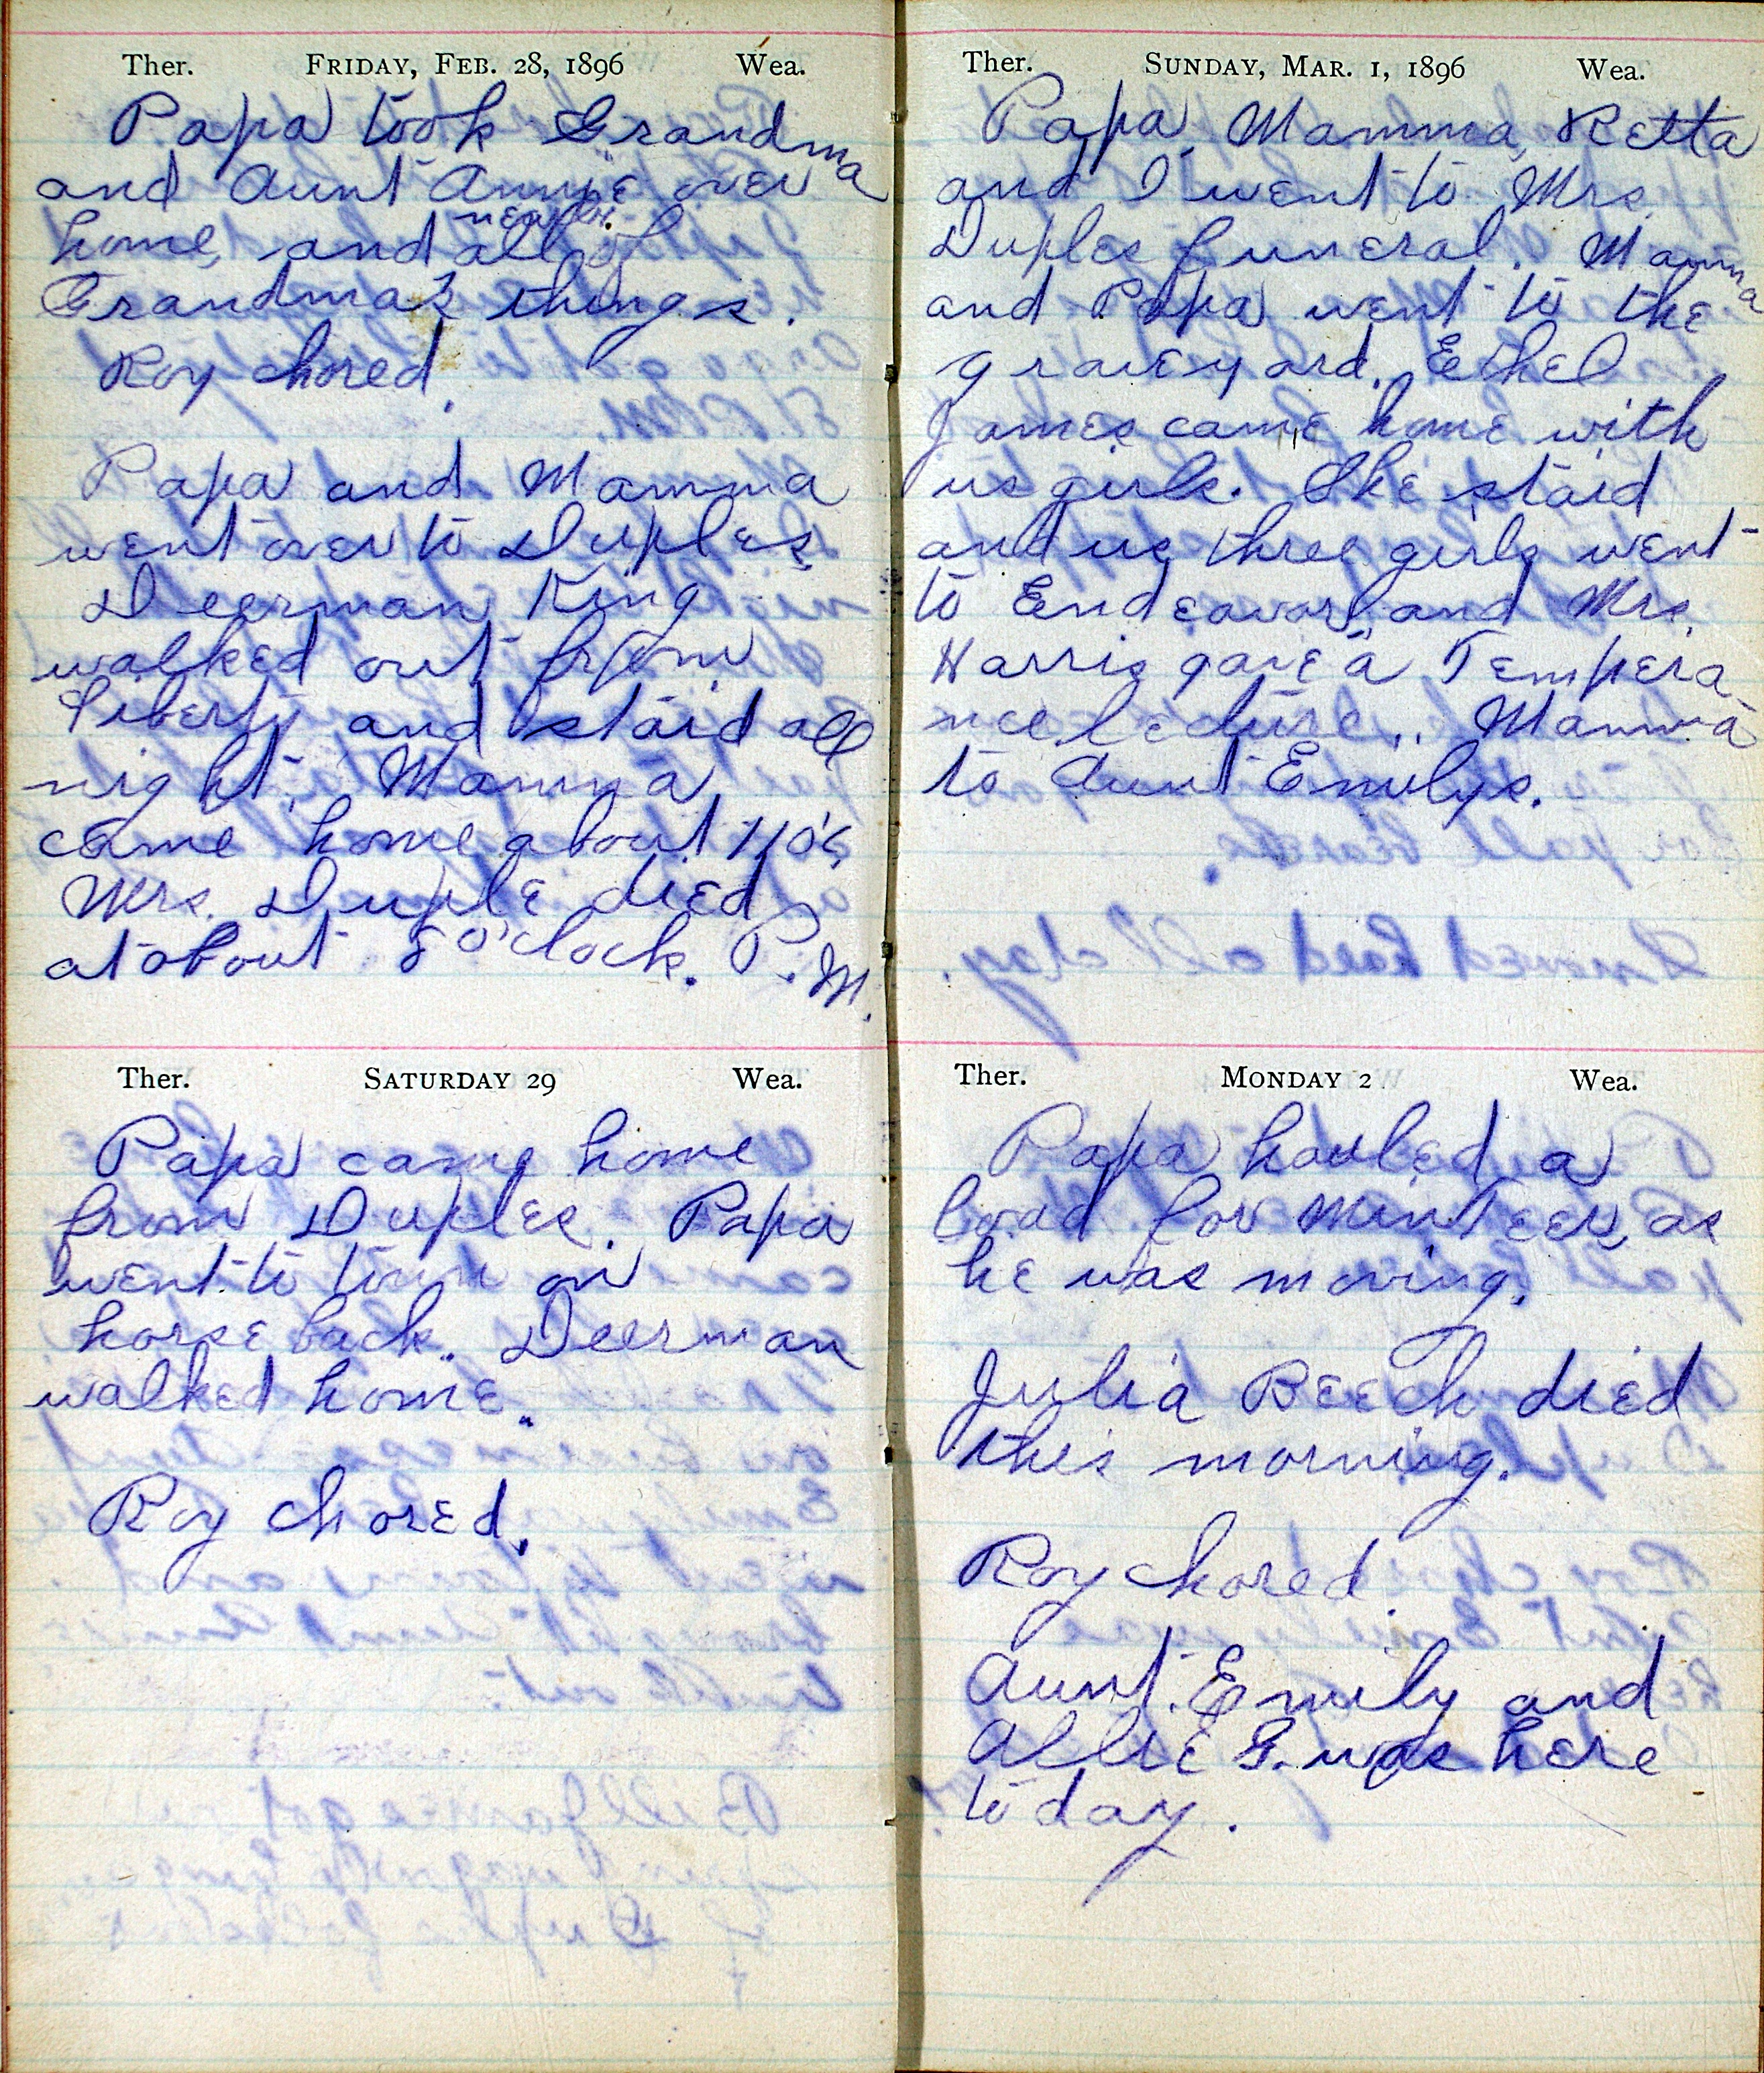 Ther. FRIDAY, FEB. 28, 1896 Wea.
Papa took Grandma
and Aunt Annie over
home, and nearly all of
Grandma's things.
Roy chored.
Papa and Mamma
went over to Duples
Deerman King
walked out from
Liberty and staid all
night. Mamma
came home about 11 o'c,
Mrs. Duple died
at about 8 o'clock. P.M.
Ther. SATURDAY 29 Wea.
Papa came home
from Duples. Papa
went to town on
horse back. Deerman
walked home.
Roy chored.
Ther. SUNDAY, MAR. 1, 1896 Wea.
Papa, Mamma, Retta
and I went to Mrs.
Duples funeral. Mamma
and Papa went to the
graveyard. Ethel
James came home with
us girls. She staid
and us three girls went
to Endeavor, and Mrs.
Harris gave a Tempera
nce lecture.. Mamma
to Aunt Emilys.
Ther. MONDAY 2 Wea.
Papa hauled a
load for MinTeer, as
he was moving.
Julia Beech died
this morning.
Roy chored.
Aunt Emily and
Allie G. was here
today.